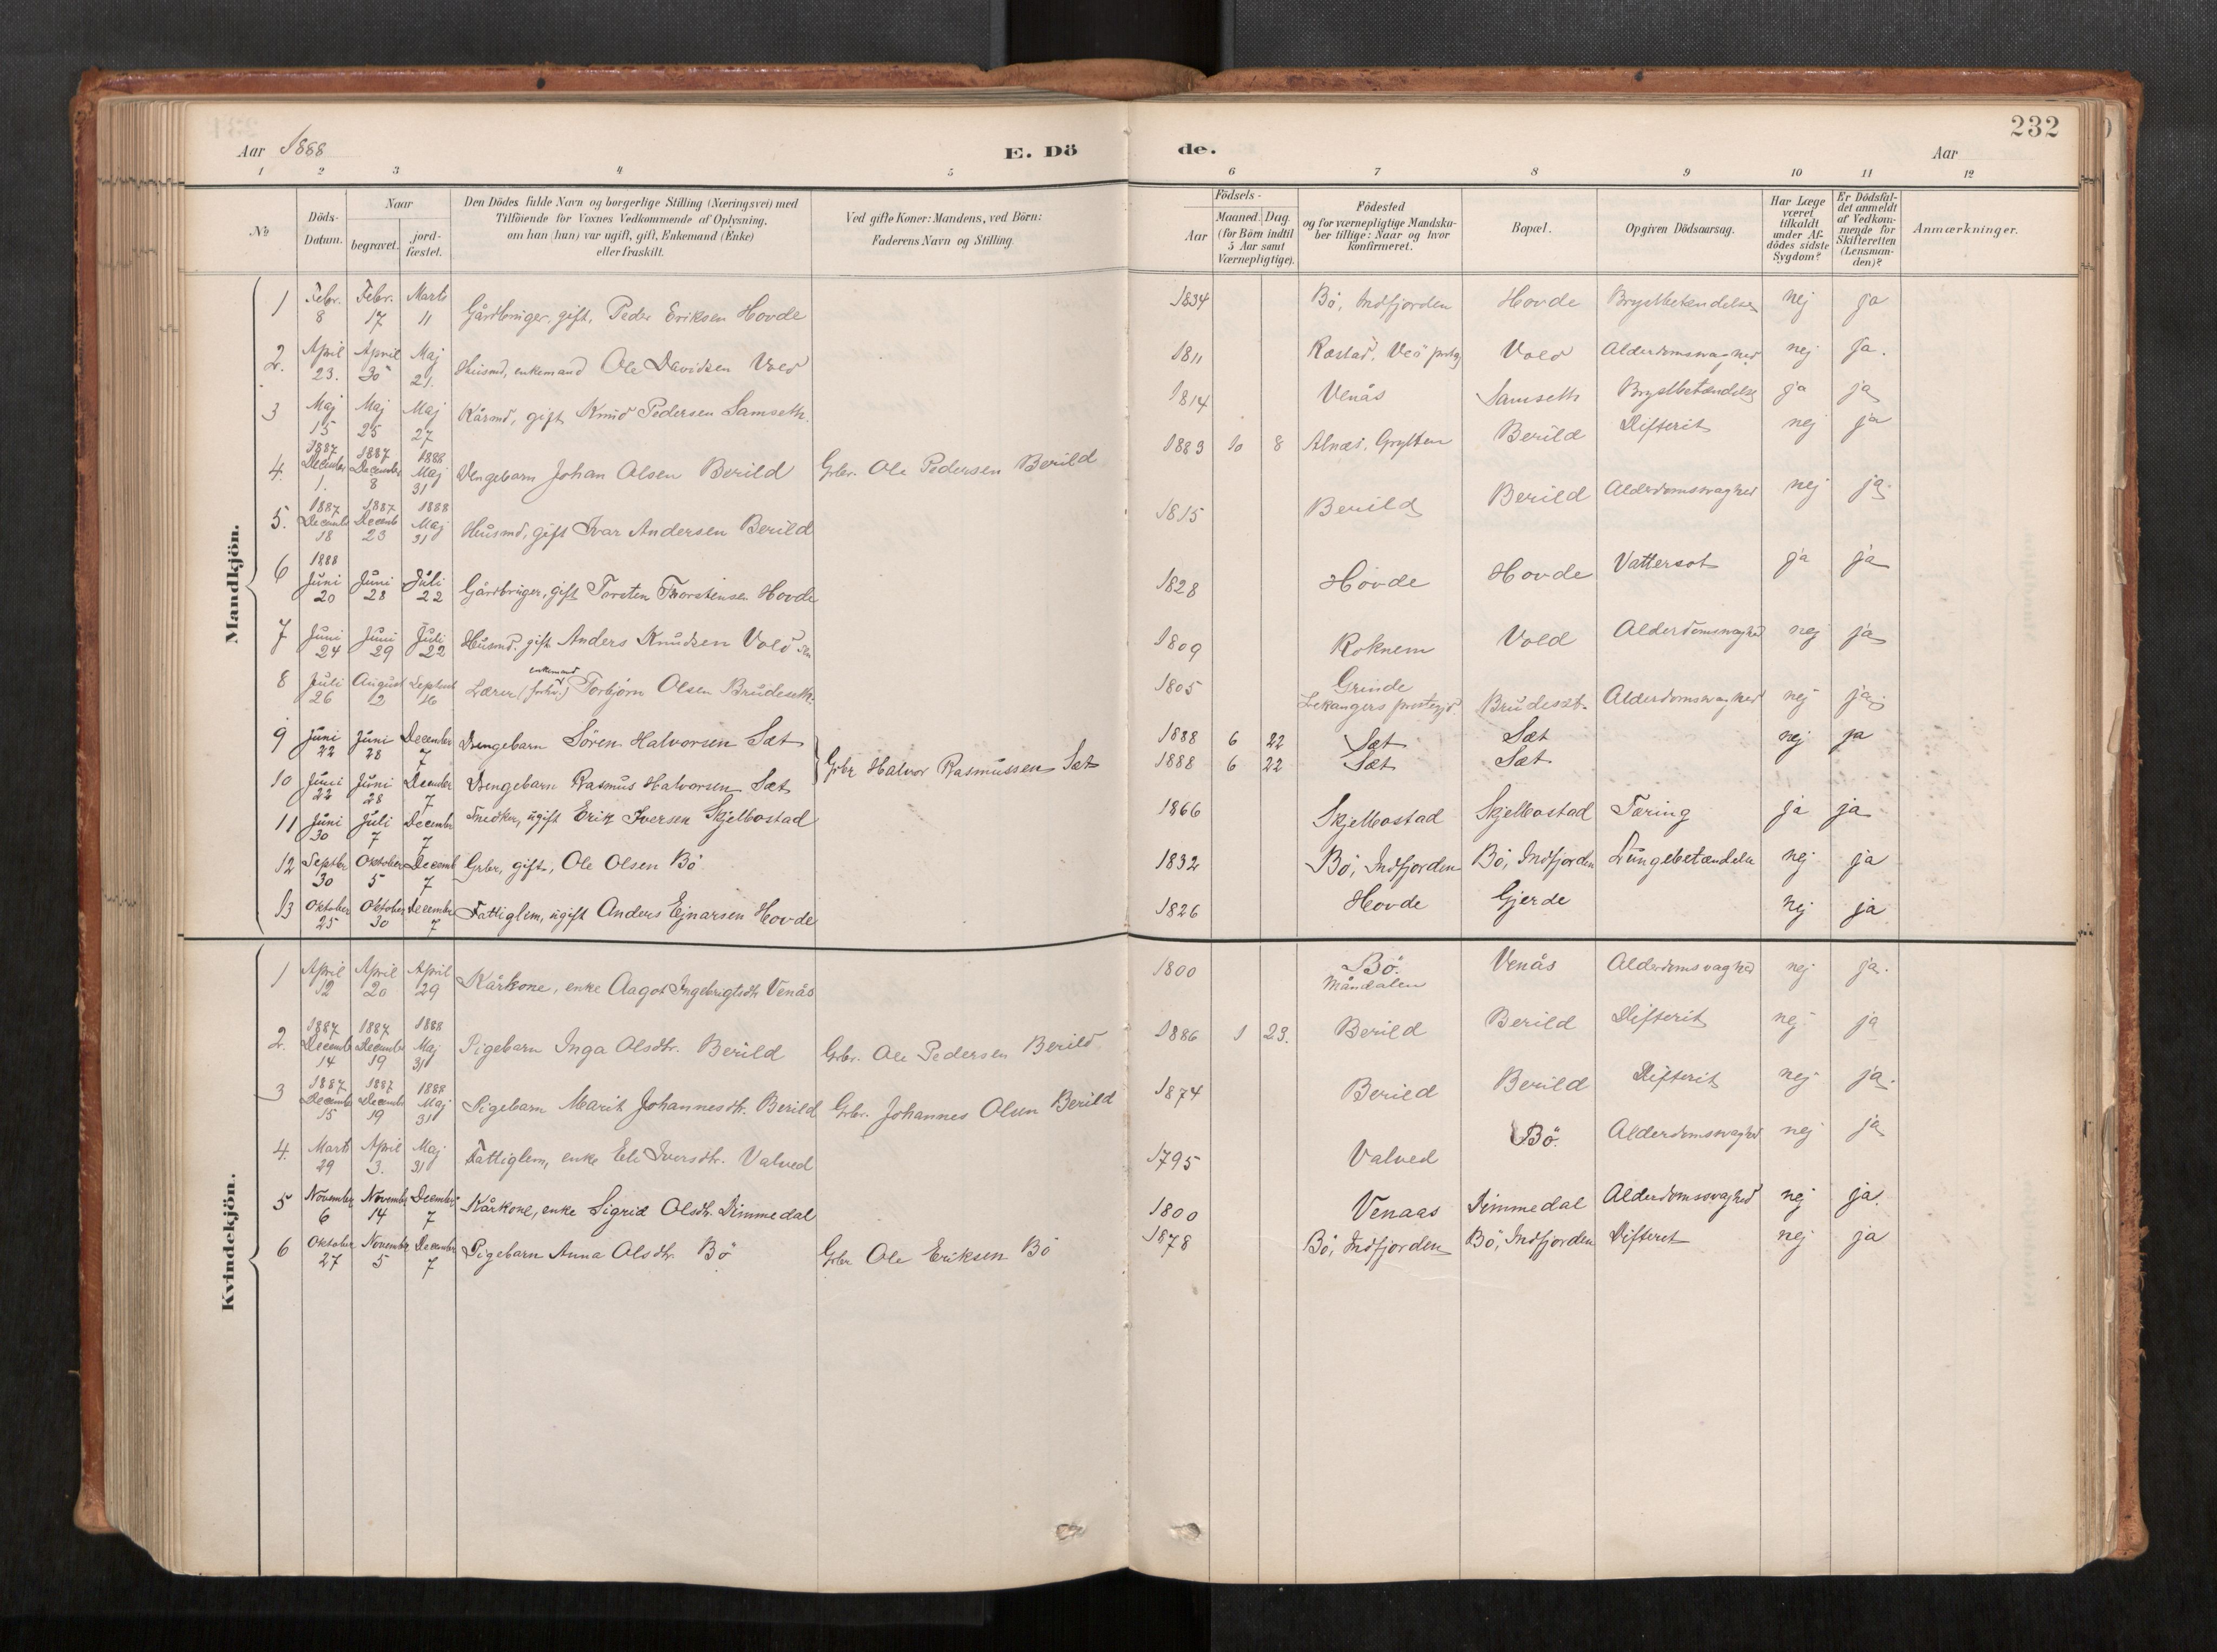 232
Aar 1888 E. Döde. Aar
1 2 3 4 5 6 7 8 9 10 11 12
№ Döds-Datum. Naar begravet. jord-fæstet. Den Dödes fulde Navn og borgerlige Stilling (Næringsvei) med Tilföiende for Voxnes Vedkommende af Oplysning, om han (hun) var ugift, gift, Enkemand (Enke) eller fraskilt. Ved gifte Koner: Mandens, ved Börn: Faderens Navn og Stilling. Födsels- Aar Maaned Dag (for Börn indtil 5 Aar samt Værnepligtige). Födested og for værnepligtige Mandska-ber tillige: Naar og hvor konfirmeret. Bopæl. Opgiven Dödsaarsag. Har Læge været tilkaldt under Af-dödes sidste Sygdom? Er Dödsfal-det anmeldt af Vedkom-mende for Skifteretten (Lensman-den)? Anmærkninger.
Mandkjön.
1 Febr. 8 Febr. 17 Marts 11 Gårdbruger, gift, Peder Eriksen Hovde 1834 Bö, Indfjorden Hovde Brystbetændelse nej ja
2. April 23. April 30 Maj 21. Husmd, enkemand Ole Davidsen Vold 1811 Veö prstg Vold Alderdomsvaghed nej ja.
3 Maj 15 Maj 25 Maj 27 Kårmd, gift Knud Pedersen Samseth. 1814 Venås Samseth Brystbetændelse ja ja
4. 1887 December 1. 1887 December 8 1888 Maj 31 Drengebarn Johan Olsen Berild Grbr. Ole Pedersen Berild 1883 10 8 Alnæs, Grytten Berild Difterit nej ja
5. 1887 Decemb 18 1887 Decemb 23 1888 Maj 31 Husmd, gift Ivar Andersen Berild 1815 Berild Berild Alderdomsvaghed nej ja.
6 1888 Juni 20 Juni 28 Juli 22 Gårdbruger, gift Torsten Thorstensen Hovde 1828 Hovde Hovde Vattersot ja ja
7 Juni 24 Juni 29 Juli 22 Husmd. gift Anders Knudsen Vold 1809 Roknem Vold Alderdomsvaghed nej ja
8 Juli 26 August 2 Septemb 16 Lærer (forhv.) enkemand Torbjörn Olsen Brudeseth. 1805 Grinde Lekangers prestegjd. Brudeset. Alderdomsvaghed nej ja.
9 Juni 22 Juni 28 December 7 Drengebarn Sören Halvorsen Sæt Grbr Halvor Rasmussen Sæt 1888 6 22 Sæt Sæt nej ja
10 Juni 22 Juni 28 December 7 Drengebarn Rasmus Halvorsen Sæt 1888 6 22 Sæt Sæt
11 Juni 30 Juli 7 December 7 Snedker, ugift Erik Iversen Skjelbostad 1866 Skjelbostad Skjelbostad Tæring ja ja
12 Septbr 30 Oktober 5 Decemb 7 Grbr, gift, Ole Olsen Bö 1832 Bö, Indfjorden Bö, Indfjorden Lungebetændelse nej ja
13 Oktober 25 Oktober 30 December 7 Fattiglem, ugift Anders Ejnarsen Hovde 1826 Hovde Gjerde nej ja
Kvindekjön.
1 April 12 April 20 April 29 Kårkone, enke Aagot Ingebrigtsdtr Venås 1800 Bö. Måndalen Venås Alderdomsvaghed nej ja.
2. 1887 Decemb 14 1887 Decemb 19 1888 Maj 31 Pigebarn Inga Olsdtr. Berild Grbr. Ole Pedersen Berild. 1886 1 23. Berild Berild Difterit nej ja
3 1887 Decemb 15 1887 Decemb 19 1888 Maj 31 Pigebarn Marit Johannesdtr. Berild Grbr. Johannes Olsen Berild 1874 Berild Berild Difterit nej ja.
4. Marts 29 April 3. Maj 31 Fattiglem, enke Eli Iversdtr. Valved 1795 Valved Bö. Alderdomsvaghed nej ja
5 November 6 November 14 December 7 Kårkone, enke Sigrid Olsdtr. Dimmedal 1800 Venaas Dimmedal Alderdomssvaghed nej ja.
6 Oktober 27 November 5 December 7 Pigebarn Anna Olsdtr. Bö Grbr Ole Eriksen Bö 1878 Bö, Indfjorden Bö, Indfjorden Difterit nej ja